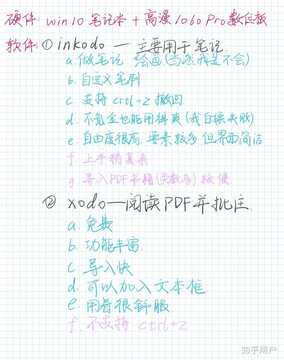 硬件: win10 笔记本 + 高漫1060 Pro数位板
软件: ① inkodo — 主要用于笔记
a. 做笔记 绘画(当然我是不会)
b. 自定义笔刷
c. 支持 ctrl-z 撤回
d. 不氪金也能用得爽(我自接失败)
e. 自由度很高 要素较多 但界面简洁
f. 上手稍复杂
g. 导入PDF书籍(页数多)较慢
② xodo—阅读PDF并批注
a. 免费
b. 功能丰富
c. 导入快
d. 可以加入文本框
e. 用着很舒服
f. 不支持 ctrl+z
知乎用户